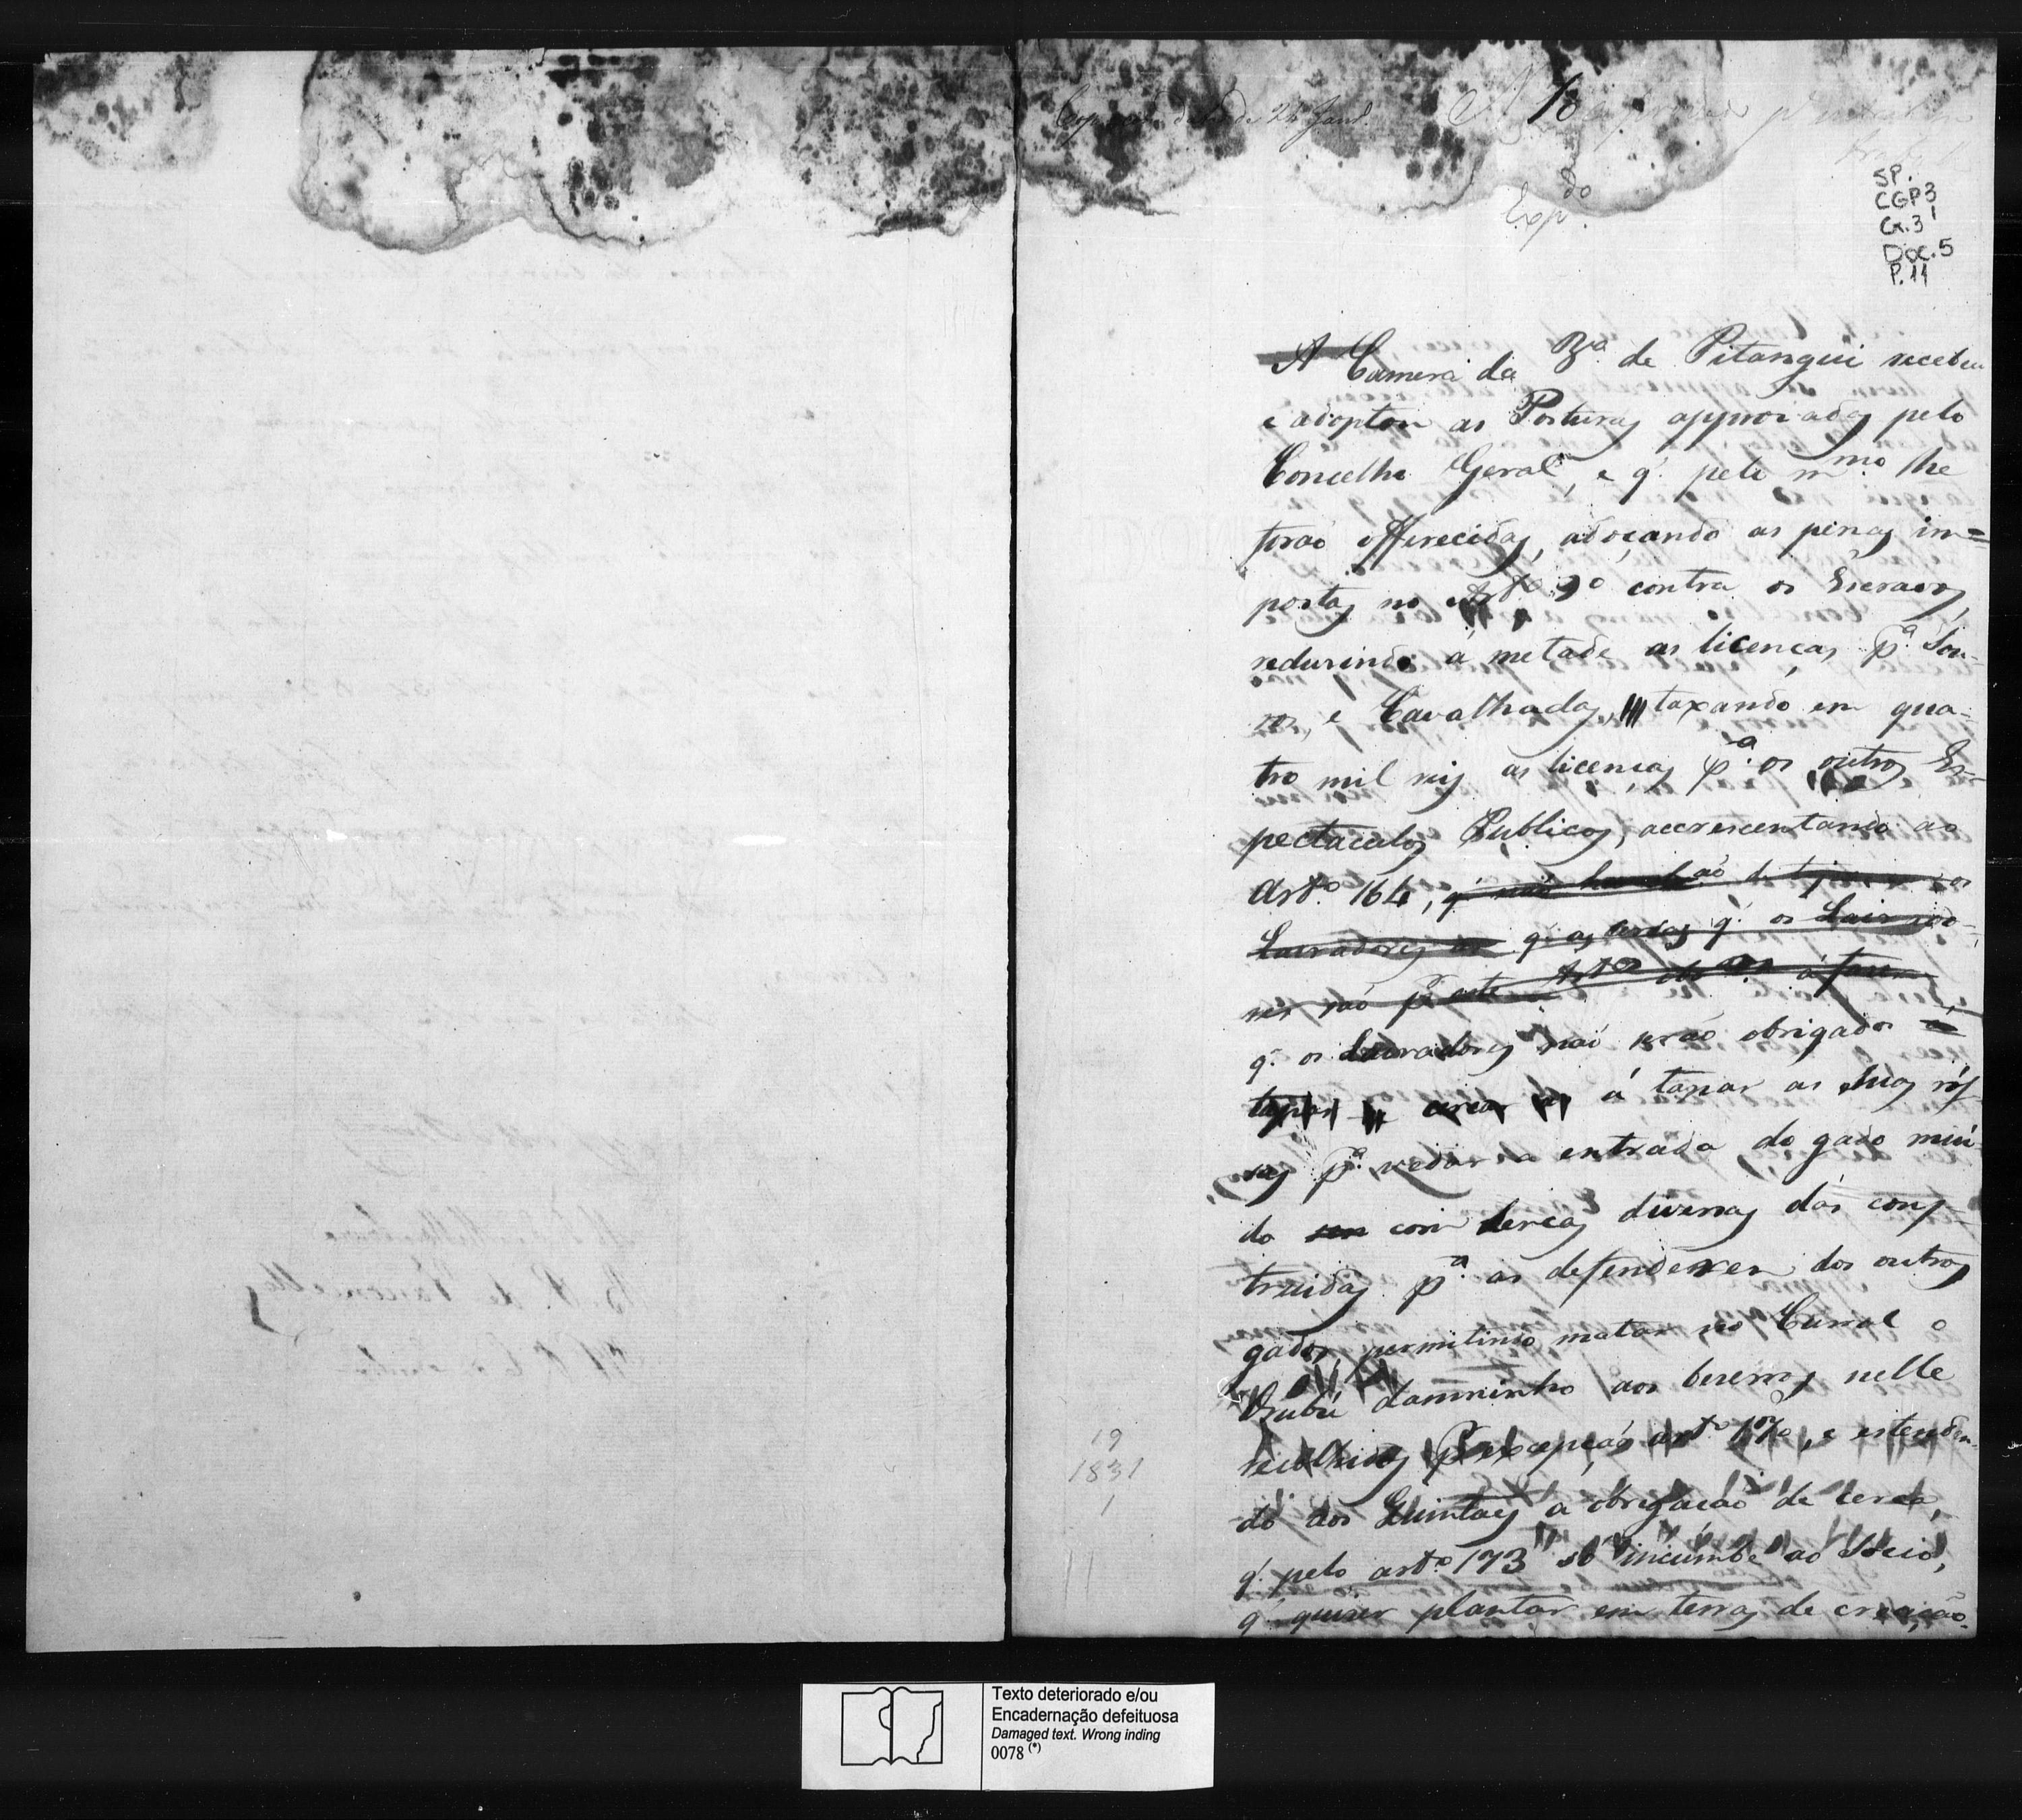 Exp.do
SP.
CGP3
Cx.3
Doc.5
P.11
A Camera da Va. de Pitangui recebeu
e adoptou as Posturas approvadas pelo
Concelho Geral, e q. pelo mmo lhe
forão offerecidas, adoçando as penas im=
postas no Arto 9o contra os Escravos,
redusindo á metade as licenças pa. Tou-
ros, e Cavalhadas, taxando em qua-
tro mil reis as licenças pa. os outros Es-
pectaculos Publicos, accrescentando ao
Arto. 164, q. não de os
Lavradores as q. as cercas q. os
são pa. este Arto
q. os Lavradores não serão obrigados a
tapar cercar á tapar as suas ros-
sas pa. vedar a entrada do gado miu-
do com cercas diversas das cons-
truidas pa. as defenderem dos outros
gados, permitindo matar no Curral o
Urubú damninho aos beserros nelle
recolhidos pr. excepção arto 170, e estenden-
do aos Quintaes a obrigação de cerca,
q. pelo arto. 173 só incumbe ao Socio,
q. quiser plantar em terras de creação.
19
1831
1
11
Texto deteriorado e/ou
Encadernação defeituosa
Damaged text. Wrong inding
0078 (*)